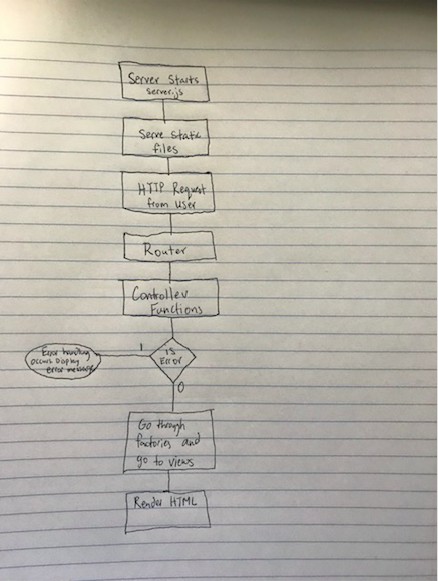 Server Starts
server.js
Serve Static
files
HTTP Request
from user
Router
Controller
Functions
1
is
Error
Error handling
occurs Display
error message
0
Go through
factories and
go to views
Render HTML